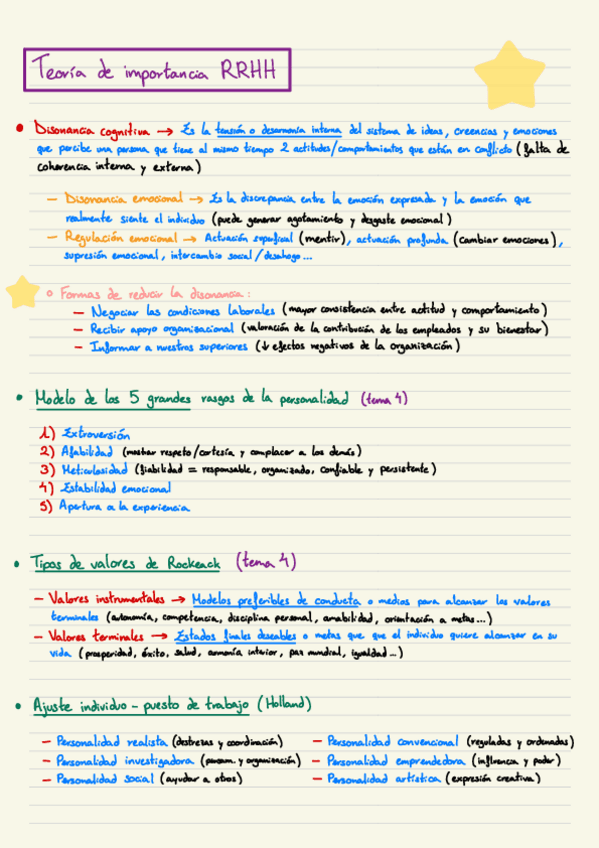 Teoría de importancia RRHH
• Disonancia cognitiva → Es la tensión o desarmonía interna del sistema de ideas, creencias y emociones
que percibe una persona que tiene al mismo tiempo 2 actitudes/comportamientos que están en conflicto (falta de
coherencia interna y externa)
– Disonancia emocional → Es la discrepancia entre la emoción expresada y la emoción que
realmente siente el individuo (puede generar agotamiento y desgaste emocional)
– Regulación emocional → Actuación superficial (mentir), actuación profunda (cambiar emociones),
supresión emocional, intercambio social/desahogo...
○ Formas de reducir la disonancia:
– Negociar las condiciones laborales (mayor consistencia entre actitud y comportamiento)
– Recibir apoyo organizacional (valoración de la contribución de los empleados y su bienestar)
– Informar a nuestros superiores (↓ efectos negativos de la organización)
• Modelo de los 5 grandes rasgos de la personalidad (tema 4)
1) Extroversión
2) Afabilidad (mostrar respeto/cortesía y complacer a los demás)
3) Meticulosidad (fiabilidad = responsable, organizado, confiable y persistente)
4) Estabilidad emocional
5) Apertura a la experiencia
• Tipos de valores de Rockeack (tema 4)
– Valores instrumentales → Modelos preferibles de conducta o medios para alcanzar los valores
terminales (autonomía, competencia, disciplina personal, amabilidad, orientación a metas...)
– Valores terminales → Estados finales deseables o metas que que el individuo quiere alcanzar en su
vida (prosperidad, éxito, salud, armonía interior, paz mundial, igualdad...)
• Ajuste individuo - puesto de trabajo (Holland)
– Personalidad realista (destrezas y coordinación) – Personalidad convencional (reguladas y ordenadas)
– Personalidad investigadora (pensam. y organización) – Personalidad emprendedora (influencia y poder)
– Personalidad social (ayudar a otros) – Personalidad artística (expresión creativa)